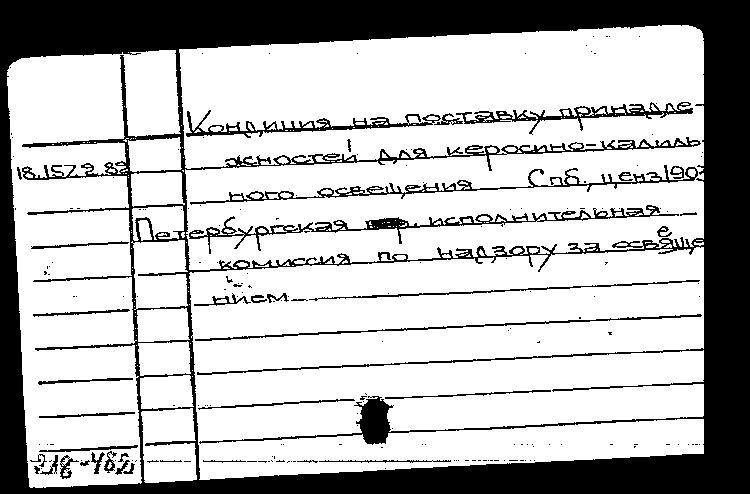 Кондиция на поставку принадле-
18.157.2.82 жностей для керосино-калиль
ного освещения Спб., ценз 1903
Петербургская исполнительная
комиссия по надзору за освеще
нием
218-482